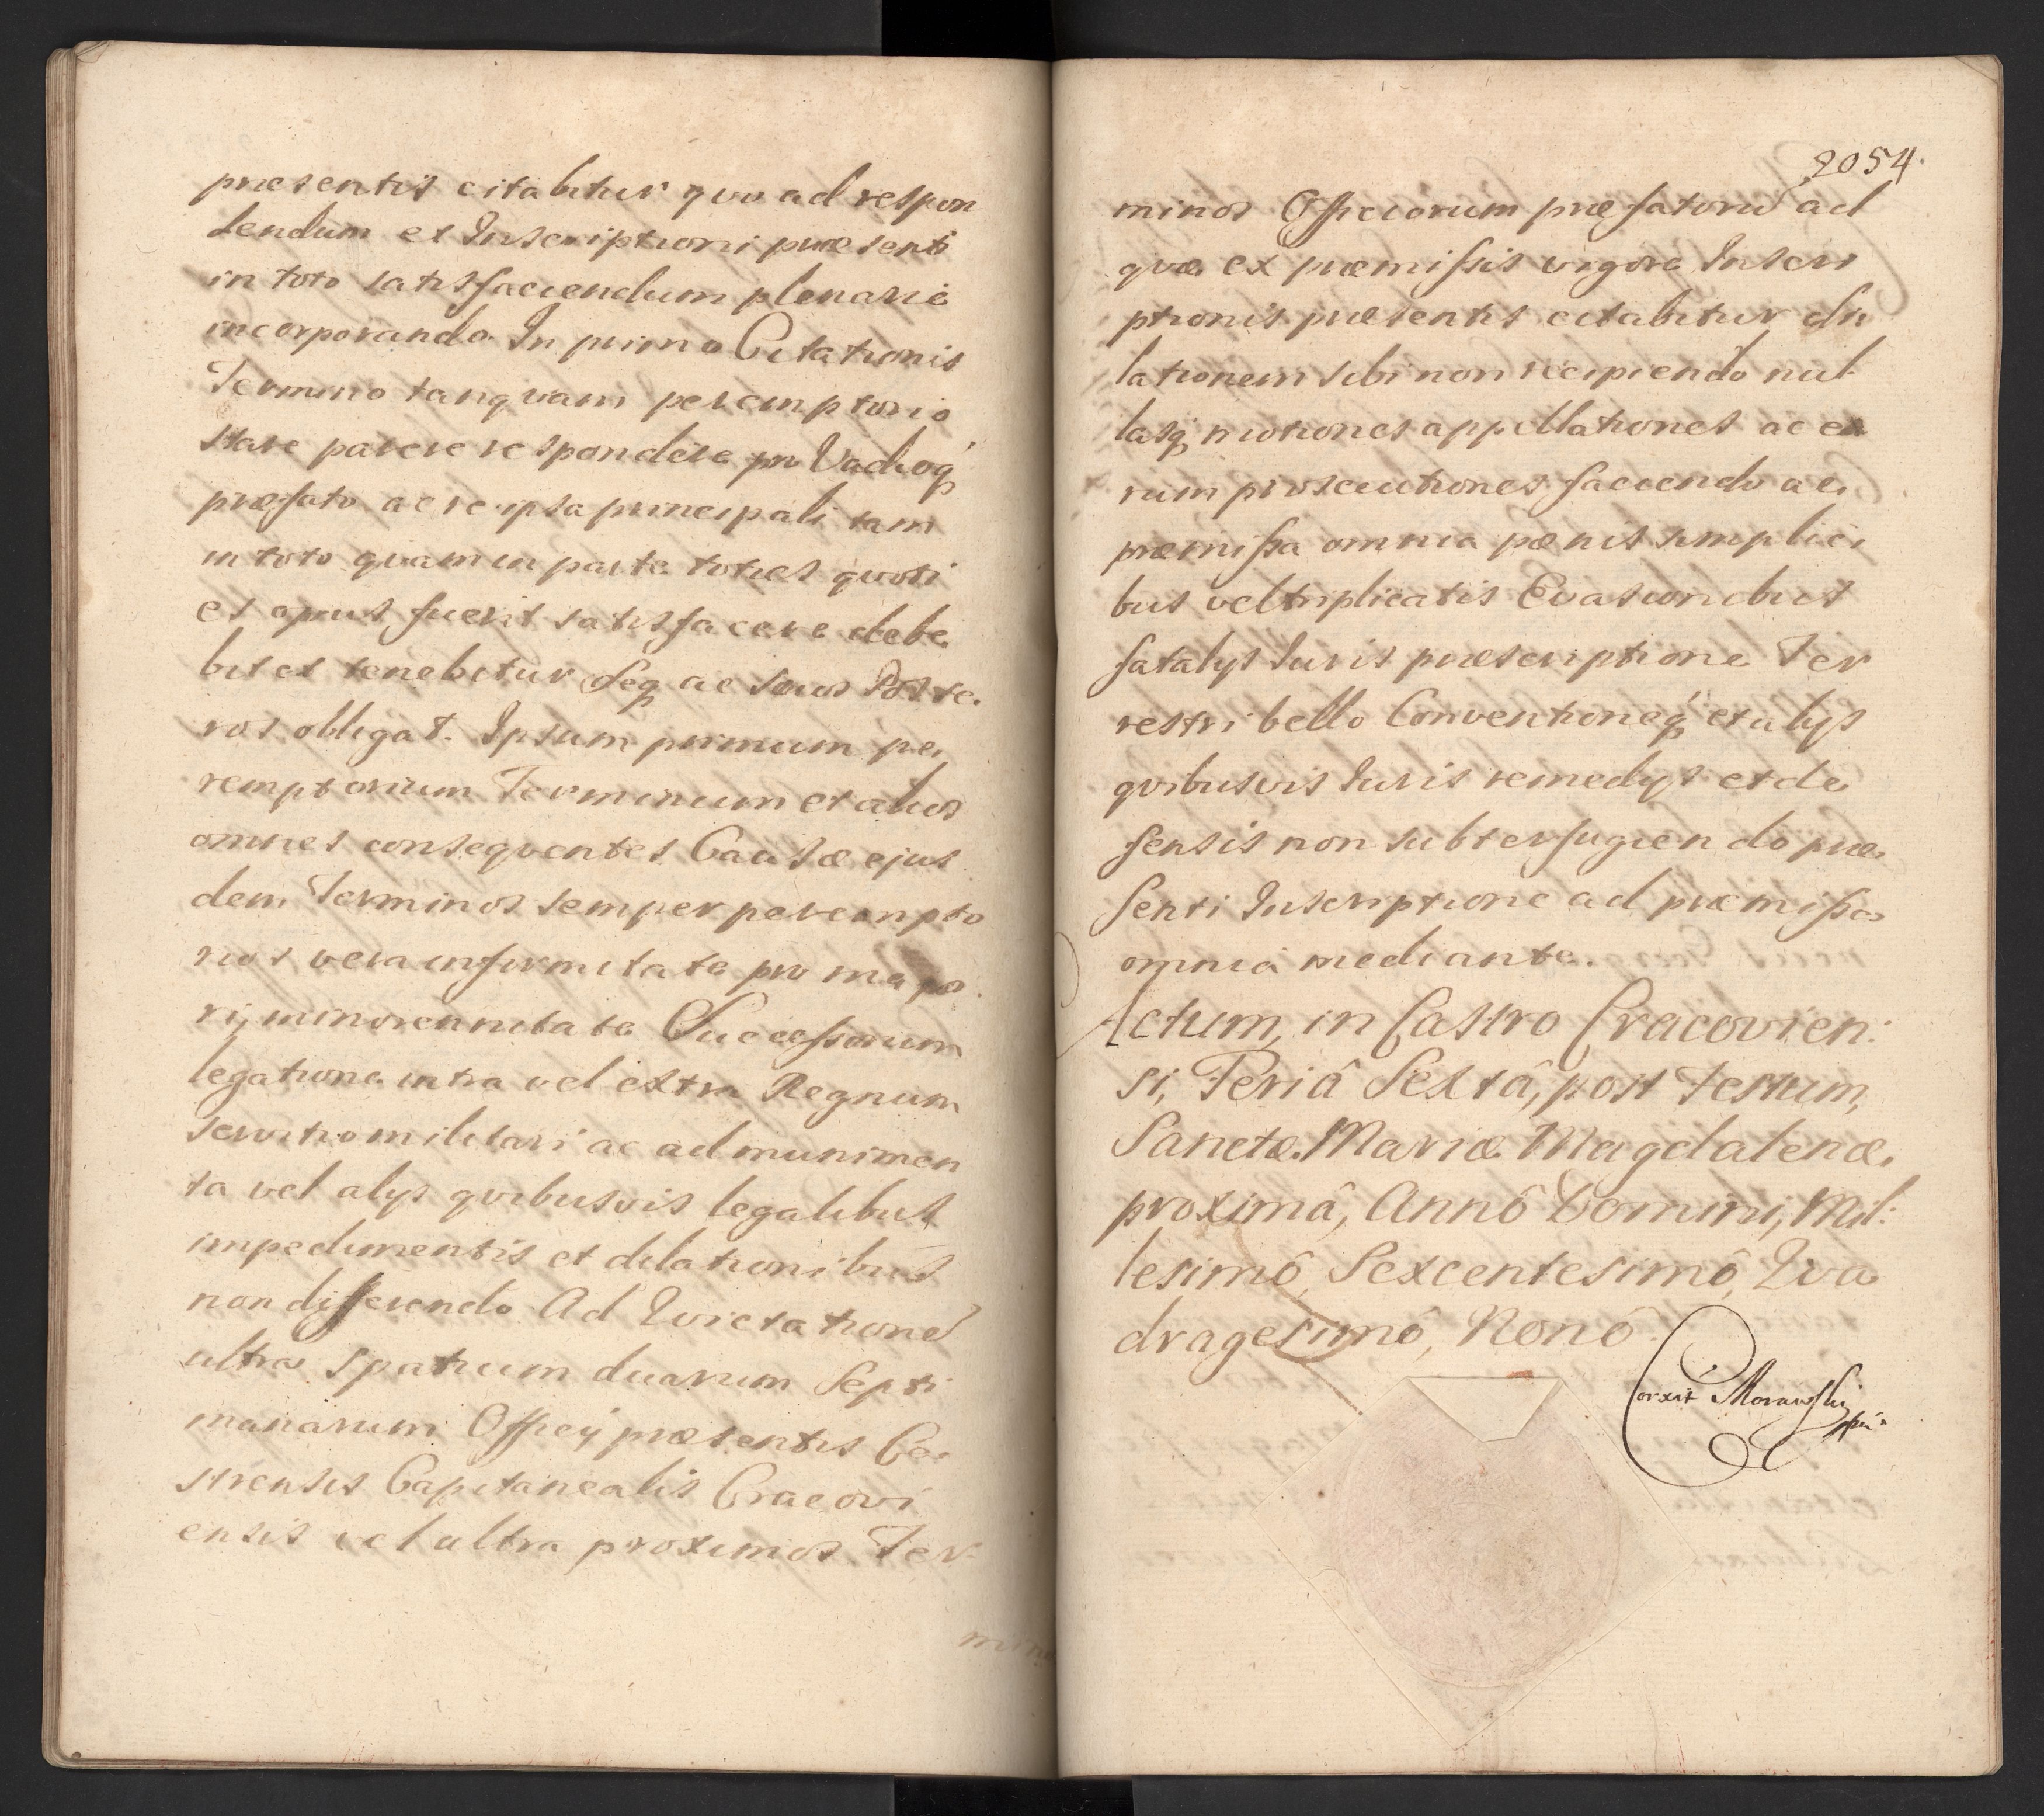 præsentis citabitur quo ad respon
dendum et Inscriptioni præsenti
in toto satisfaciendum plenarie
incorporando In primo Citationis
Termino tanqvam peremptorio
stare parere respondere pro Vadioq
præfato ac re ipsa principali tam
in toto qvam in parte toties qvoti
es opus fuerit satisfacere debe
bit et tenebitur Seq ac suos Poste
ros obligat. Ipsum primum pe
remptorium Terminum et alios
omnes conseqventes Causæ ejus
dem Terminos semper perempto
rios vera infirmitate pro majo
ri, minorennitate Successorum
legatione intra vel extra Regnum
servitio militari ac ad munimen
ta vel alys qvibusvis legalibus
impedimentis et dilationibus
non differendo Ad Qvietatione
ultra spatium duarum Septi
manarum Officij præsentis Ca
strensis Capitanealis Cracovi
ensis vel ultra proximos Ter-
min
2054.
minos Officiorum præfatoru ad
qvæ ex præmissis vigore Inscri
ptionis præsentis citabitur di
lationem sibi non recipiendo nul
lasq motiones appellationes ac ea
rum prosecutiones faciendo ac
præmissa omnia pænis simplici
bus vel triplicatis Evasionibus
fatalys Iuris præscriptione Ter
restri bello Conventioneq et alys
qvibusvis Iuris remedys et de
fensis non subterfugiendo præ
senti Inscriptione ad præmissa
omnia mediante.
Actum, in Castro Cracovien:
si, Feriâ Sextâ, post Festum,
Sanctæ Mariæ Magdalenæ,
proximâ, Annô Domini, Mil:
lesimô, Sexcentesimô, Qva
dragesimô, Nonô.
Corxit Morawski
mpa